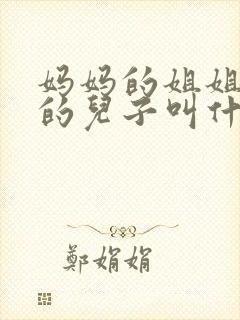 妈妈的姐姐
的兒子叫什
鄭娟娟